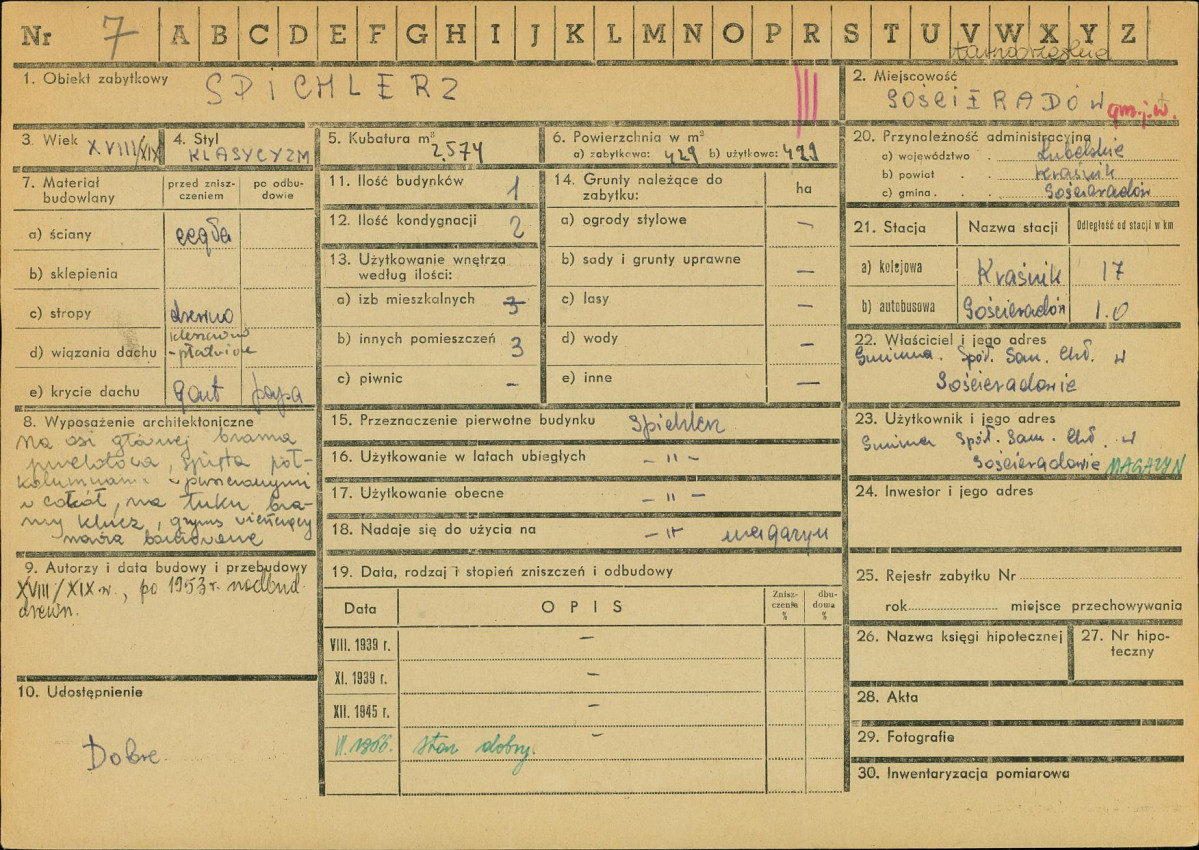 Nr 7 A B C D E F G H I J K L M N O P R S T U V W X Y Z
tarnobrzeskie
1. Obiekt zabytkowy SPICHLERZ III
2. Miejscowość
GOŚCIERADÓW gm.j.w.
3. Wiek XVIII/XIX
4. Styl KLASYCYZM
5. Kubatura m³ 2.574
6. Powierzchnia w m²
a) zabytkowa: 429 b) użytkowa: 429
7. Materiał budowlany
przed zniszczeniem
po odbudowie
a) ściany cegła
b) sklepienia
c) stropy drewno
d) wiązania dachu
- płatwiowe
e) krycie dachu gont papa
8. Wyposażenie architektoniczne
Na osi głównej brama
przelotowa, spięta pół-
kolumnami
w cokół, na łuku bra-
my klucz, gzyms wieńczący
9. Autorzy i data budowy i przebudowy
XVIII/XIX w., po 1953 r. nadbud.
drewn.
10. Udostępnienie
Dobre
11. Ilość budynków 1
12. Ilość kondygnacji 2
13. Użytkowanie wnętrza
według ilości:
a) izb mieszkalnych
b) innych pomieszczeń 3
c) piwnic -
14. Grunty należące do
zabytku: ha
a) ogrody stylowe -
b) sady i grunty uprawne -
c) lasy -
d) wody -
e) inne -
15. Przeznaczenie pierwotne budynku spichlerz
16. Użytkowanie w latach ubiegłych - " -
17. Użytkowanie obecne - " -
18. Nadaje się do użycia na - " magazyn
19. Data, rodzaj i stopień zniszczeń i odbudowy
Data OPIS Zniszczenia % dbudowa %
VIII. 1939 r. -
XI. 1939 r. -
XII. 1945 r. -
VI.1966. stan dobry. -
20. Przynależność administracyjna
a) województwo Lubelskie
b) powiat Kraśnik
c) gmina Gościeradów
21. Stacja Nazwa stacji Odległość od stacji w km
a) kolejowa Kraśnik 17
b) autobusowa Gościeradów 1.0
22. Właściciel i jego adres
Gminna Spół. Sam. Chł. w
Gościeradowie
23. Użytkownik i jego adres
Gminna Spół. Sam. Chł. w
Gościeradowie MAGAZYN
24. Inwestor i jego adres
25. Rejestr zabytku Nr
rok miejsce przechowywania
26. Nazwa księgi hipotecznej
27. Nr hipoteczny
28. Akta
29. Fotografie
30. Inwentaryzacja pomiarowa